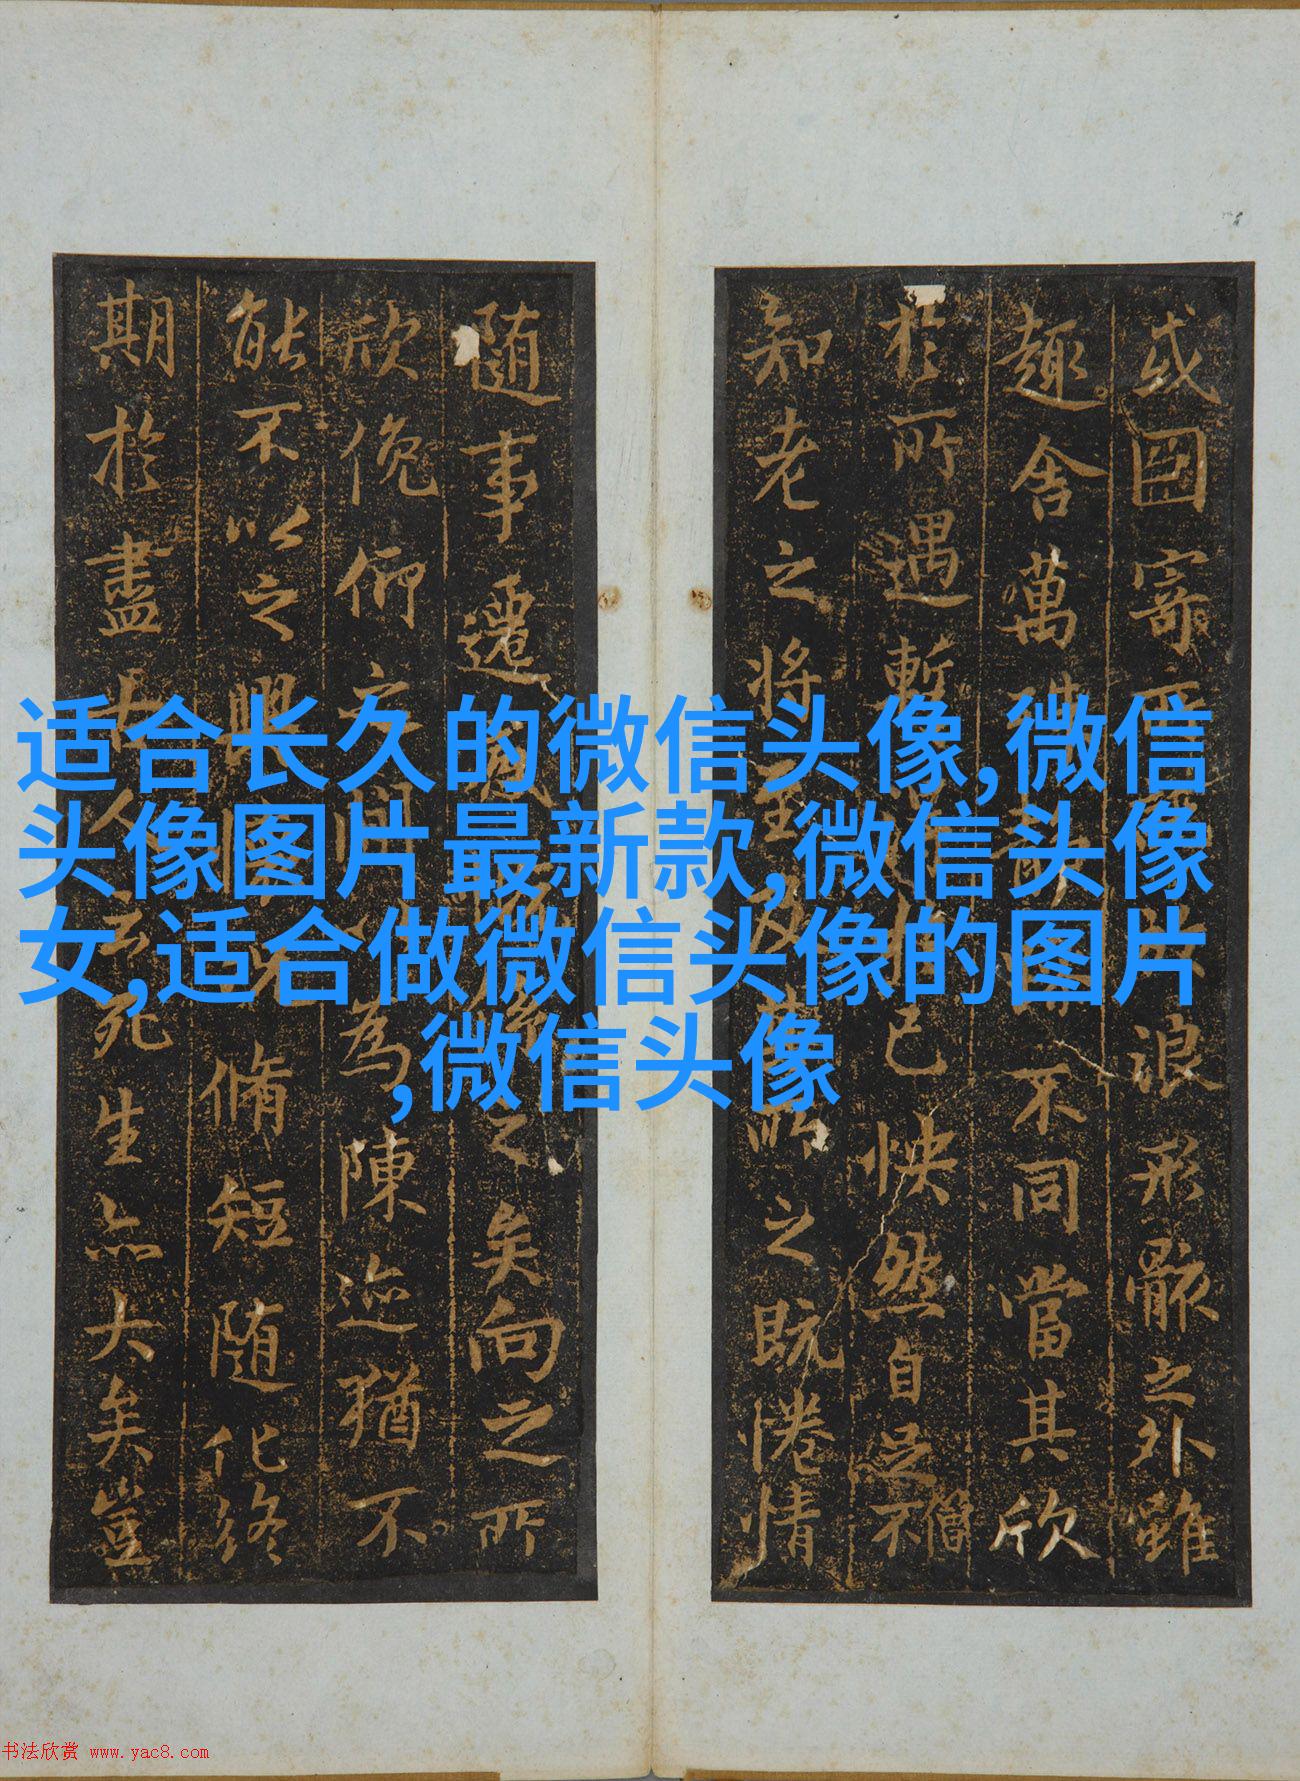 适合长久的微信头像,微信
头像图片最新款,微信头像
女,适合做微信头像的图片
,微信头像
或因寄浪形骸之外雖
趣舍萬不同當其欣
於所遇暫己怏然自足不僧
知老之將至及所之既惓情
隨事遷之矣向之所
欣俛仰之間為陳迹猶不
能不以之興脩短隨化終
期於盡古人云死生亦大矣豈
书法欣赏 www.yac8.com